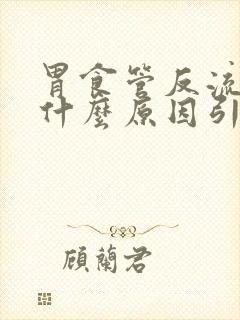 胃食管反流
什麼原因引
顧蘭君